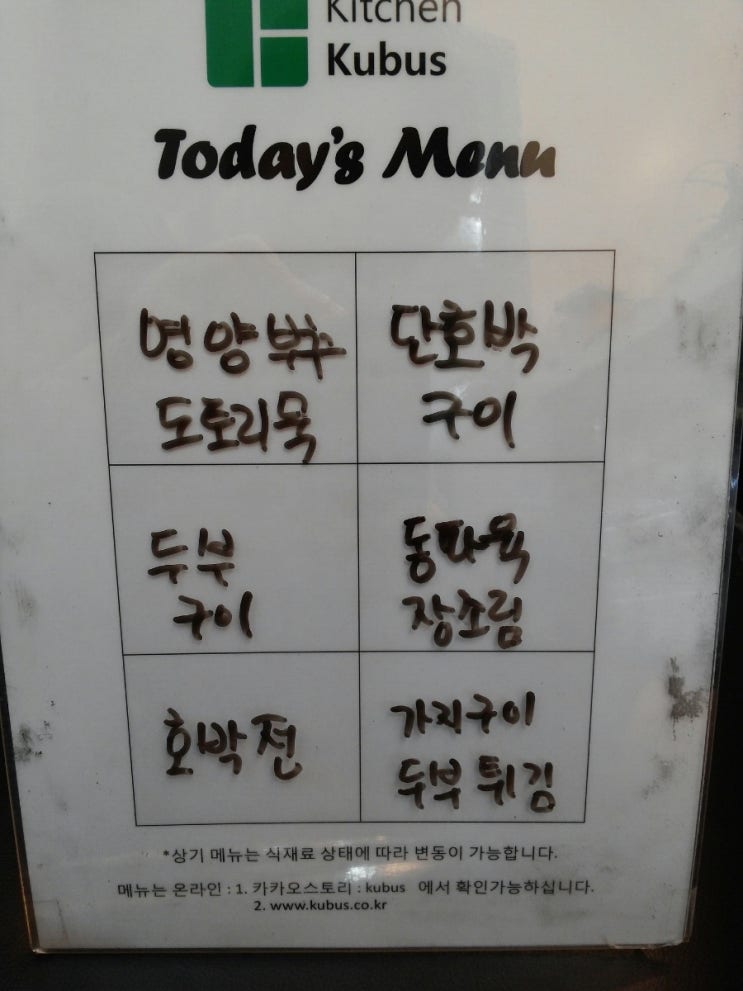 Kitchen
Kubus
Today's Menu
영양부추
도토리묵
단호박
구이
두부
구이
동파육
장조림
호박전
가지구이
두부튀김
*상기 메뉴는 식재료 상태에 따라 변동이 가능합니다.
메뉴는 온라인 : 1. 카카오스토리 : kubus 에서 확인가능하십니다.
2. www.kubus.co.kr